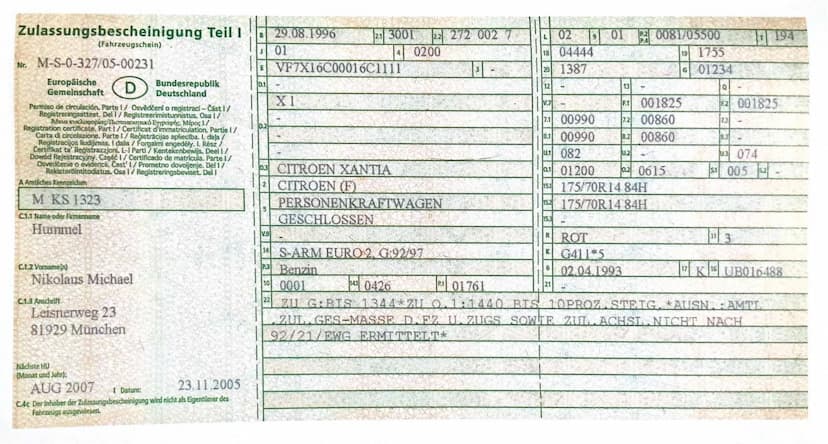 Zulassungsbescheinigung Teil I
(Fahrzeugschein)
Nr. M-S-0-327/05-00231
Europäische Gemeinschaft
D
Bundesrepublik Deutschland
Permiso de circulación, Parte I / Osvědčení o registraci – Část I /
Registreringsattest, Del I / Registreerimistunnistus, Osa I /
Registration certificate, Part I / Certificat d'immatriculation, Partie I /
Carta di circolazione, Parte I / Reģistrācijas apliecība, I. daļa /
Registracijos liudijimas, I dalis / Forgalmi engedély, I. Rész /
Ċertifikat ta' Reġistrazzjoni, L-I Parti / Kentekenbewijs, Deel I /
Dowód Rejestracyjny, Część I / Certificado de matrícula, Parte I /
Osvedčenie o evidencii, Časť I / Prometno dovoljenje, Del I /
Rekisteröintitodistus, Osa I / Registreringsbeviset, Del I
A Amtliches Kennzeichen
M KS 1323
C.1.1 Name oder Firmenname
Hummel
C.1.2 Vorname(n)
Nikolaus Michael
C.1.3 Anschrift
Leisnerweg 23
81929 München
Nächste HU
(Monat und Jahr):
AUG 2007 I Datum: 23.11.2005
C.4c Der Inhaber der Zulassungsbescheinigung wird nicht als Eigentümer des
Fahrzeugs ausgewiesen.
B 29.08.1996 2.1 3001 2.2 272 002 7
J 01 4 0200
E VF7X16C00016C1111 3 -
D.1 -
X 1
D.2 -
-
D.3 CITROEN XANTIA
2 CITROEN (F)
5 PERSONENKRAFTWAGEN
GESCHLOSSEN
V.9 -
14 S-ARM EURO 2, G:92/97
P.3 Benzin
10 0001 14.1 0426 P.1 01761
L 02 9 01 P.2 P.4 0081/05500 T 194
18 04444 19 1755
20 1387 G 01234
12 - 13 - Q -
V.7 - F.1 001825 F.2 001825
7.1 00990 7.2 00860 7.3 -
8.1 00990 8.2 00860 8.3 -
U.1 082 U.2 - U.3 074
O.1 01200 O.2 0615 S.1 005 S.2 -
15.1 175/70R14 84H
15.2 175/70R14 84H
15.3 -
R ROT 11 3
K G411*5
6 02.04.1993 17 K 16 UB016488
21 -
22 ZU G:BIS 1344*ZU O.1:1440 BIS 10PROZ.STEIG.*AUSN.:AMTL
.ZUL.GES-MASSE D.FZ U.ZUGS SOWIE ZUL.ACHSL.NICHT NACH
92/21/EWG ERMITTELT*